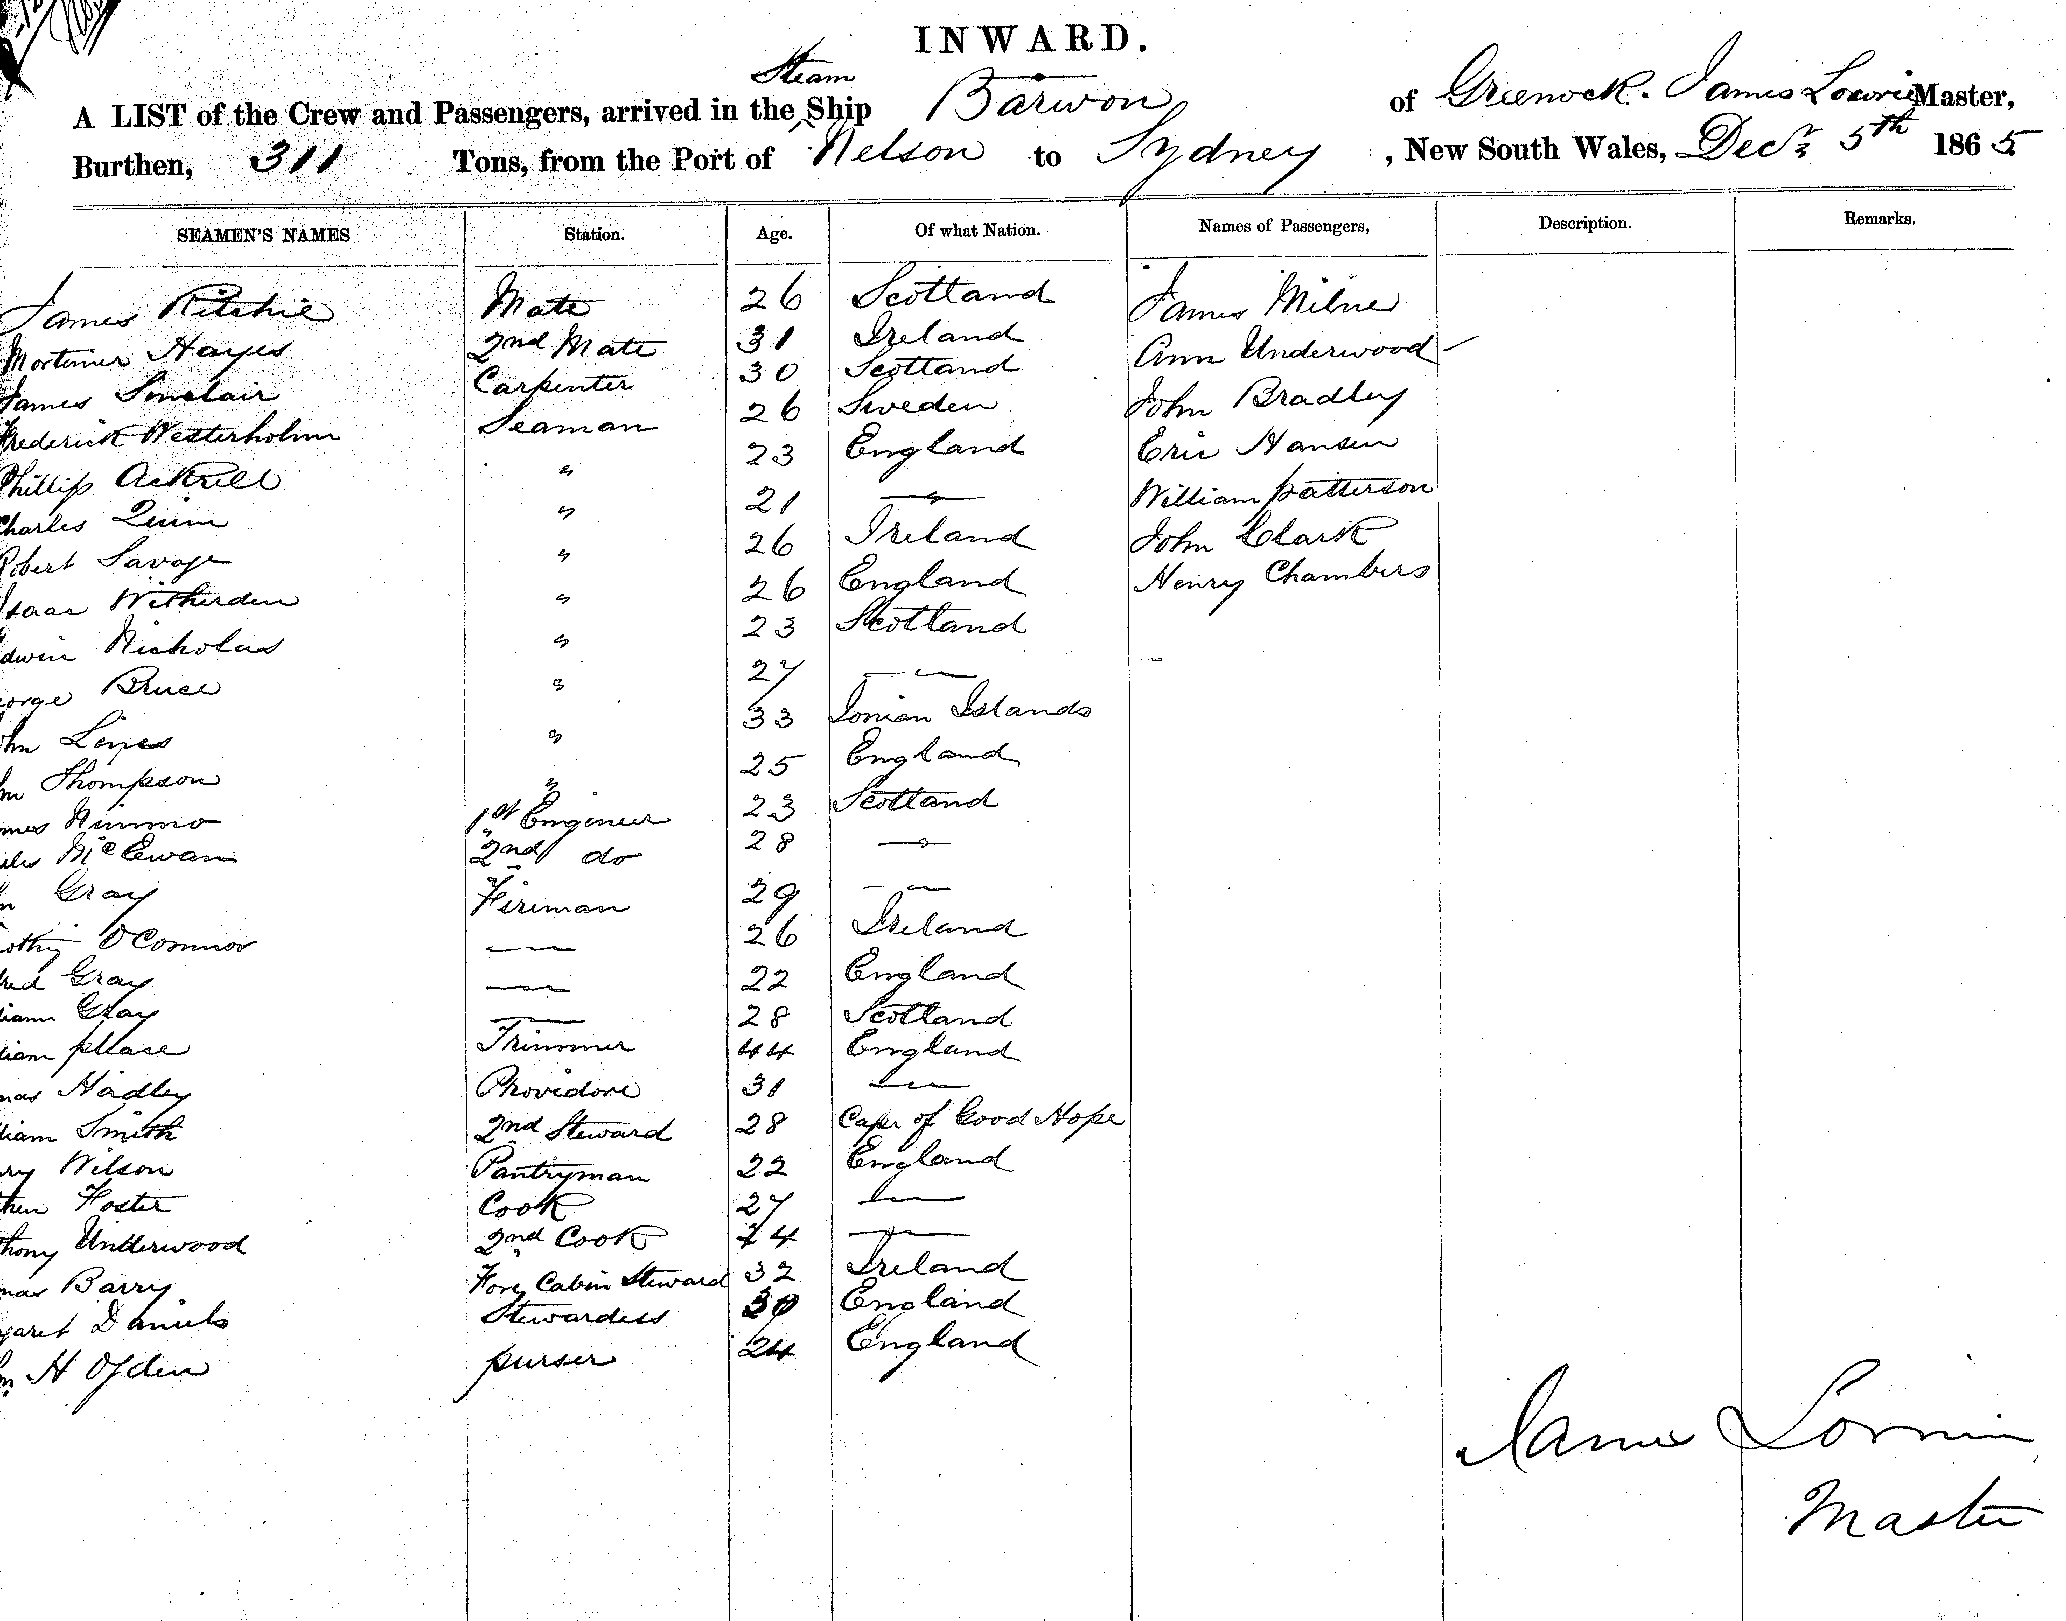 INWARD.
Steam
A LIST of the Crew and Passengers, arrived in the Ship Barwon of Greenock. James Lowrie Master,
Burthen, 311 Tons, from the Port of Nelson to Sydney, New South Wales, Decr 5th 1865
SEAMEN'S NAMES Station. Age. Of what Nation. Names of Passengers, Description. Remarks.
James Ritchie Mate 26 Scotland James Milner
Mortimer Hayes 2nd Mate 31 Ireland Ann Underwood
James Sinclair Carpenter 30 Scotland John Bradley
Frederick Westerholm Seaman 26 Sweden Eric Hansen
Phillip Ackrill " 23 England William Patterson
Charles Quinn " 21 " John Clark
Robert Savage " 26 Ireland Henry Chambers
Isaac Witherden " 26 England
dwin Nicholas " 23 Scotland
orge Bruce " 27 "
hn Lopes " 33 Ionian Islands
hn Thompson " 25 England
mes Nimmo 1st Engineer 23 Scotland
McEwan 2nd do 28 "
n Gray Fireman 29 "
othy O'Connor " 26 Ireland
red Gray " 22 England
liam Gray " 28 Scotland
liam Mace Trimmer 44 England
mas Hadley Providore 31 "
liam Smith 2nd Steward 28 Cape of Good Hope
ry Wilson Pantryman 22 England
hen Foster Cook 27 "
thony Underwood 2nd Cook 24 "
mas Barry Fore Cabin Steward 32 Ireland
garet Daniels Stewardess 30 England
Wm H Ogden purser 24 England
James Lowrie
Master